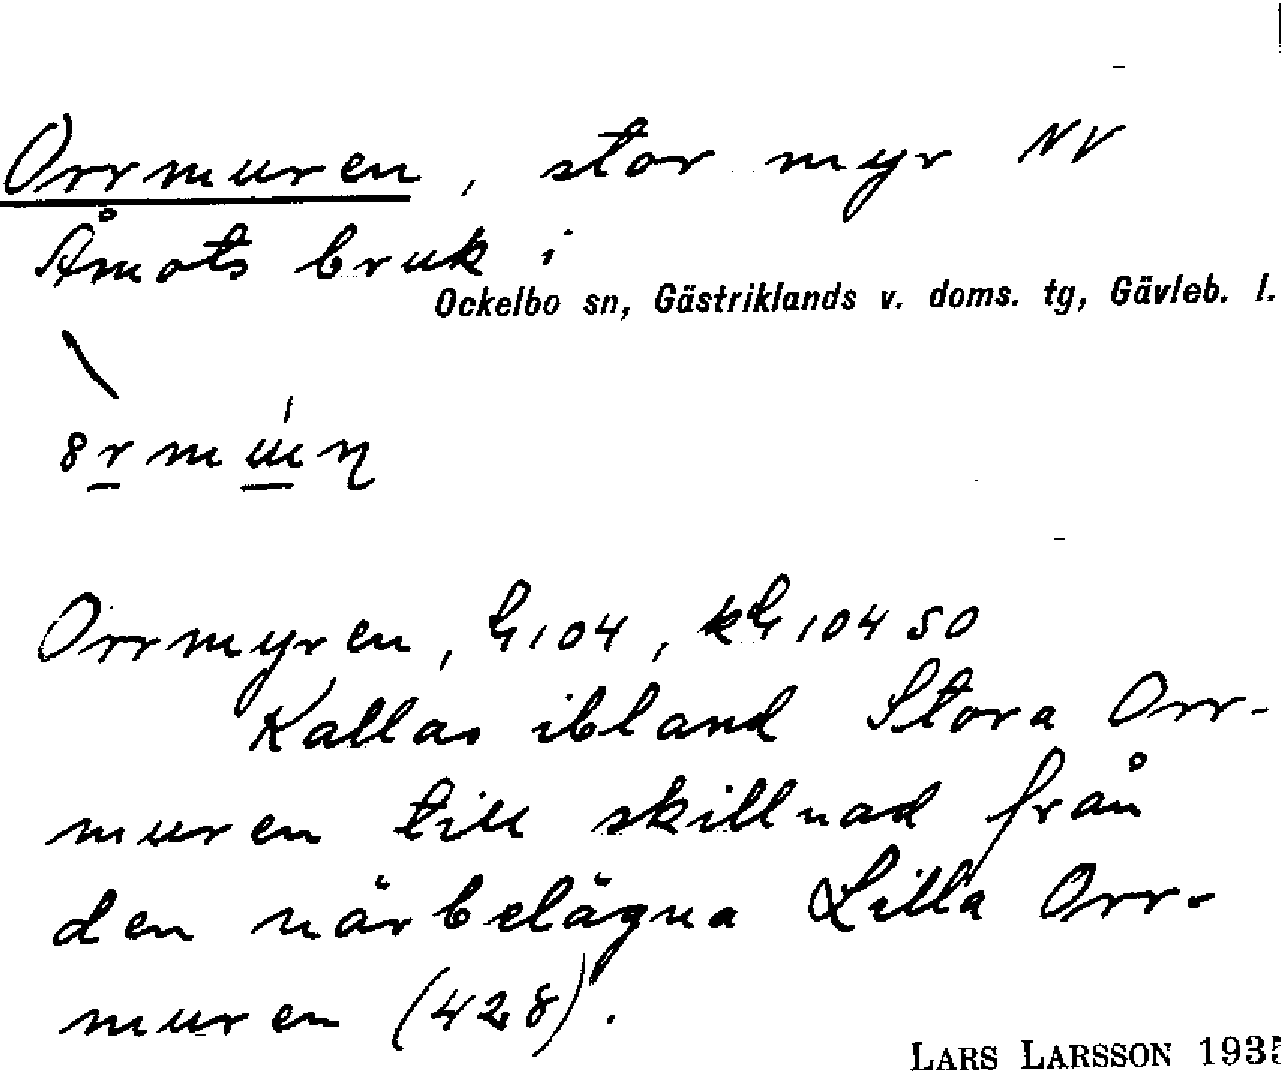 Orrmuren, stor myr NV
Åmots bruk i
Ockelbo sn, Gästriklands v. doms. tg, Gävleb. l.
Orrmyren, G104, kG 104 SO
Kallas ibland Stora Orr-
muren till skillnad från
den närbelägna Lilla Orr-
muren (428).
LARS LARSSON 1935